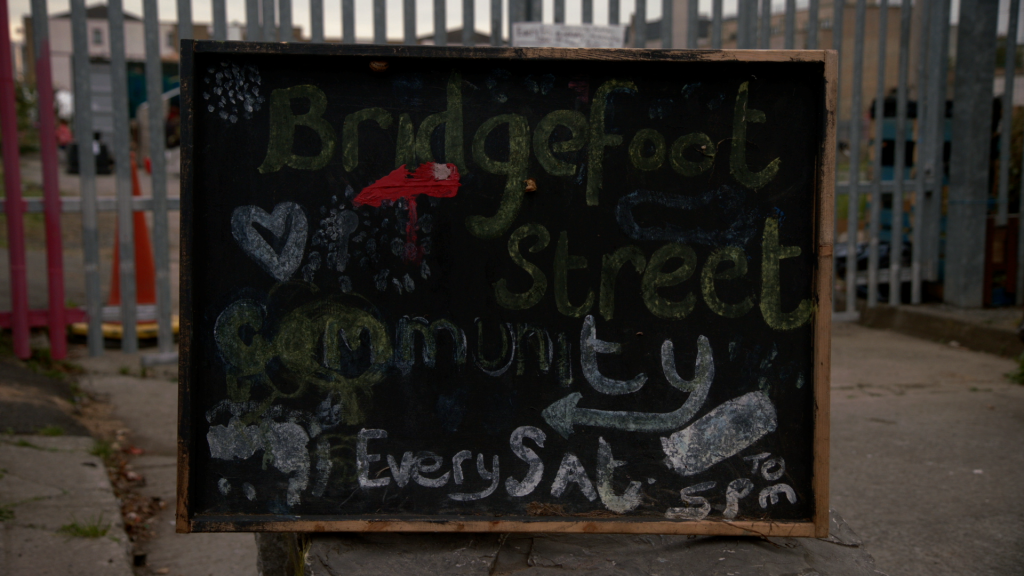 Bridgefoot
Street
Community
Every SAt.
To
5pm